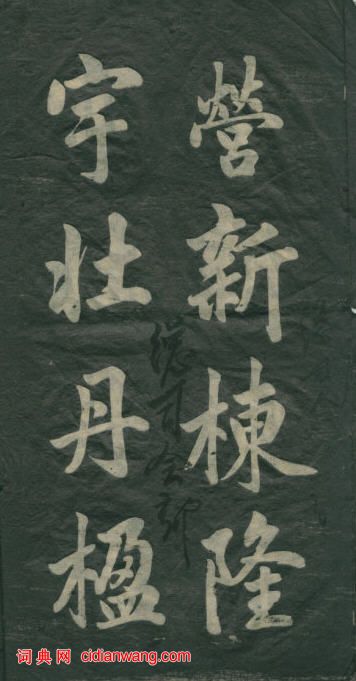 營新棟隆
宇壯丹楹
词典网 cidianwang.com